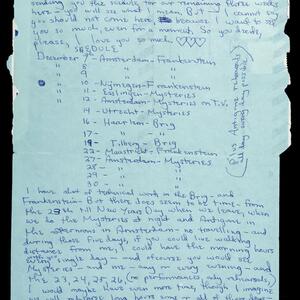 sending you the scedule for our remaining three weeks
here - you will see what I mean. But - I cannot say
you should not come here because I want to see
you so much, even for a moment. So you decide,
please, I love you so much ♡♡♡
SCEDULE
December 7th Amsterdam - Frankenstein
8 " "
9 " "
10 - Nijmegen - Frankenstein
11 - Esslingen - Mysteries
12 - Amsterdam - Mysteries on T.V.
14 - Utrecht - Mysteries
16 - Haarlem - Brig
17 - "
18 - Tilberg - Brig
22 - Maastricht - Frankenstein
27 - Amsterdam - Mysteries
28 - " "
29 - " "
30 - " "
(Plus Antigone rehearsals
all day
I have alot of technical work in the Brig - and
Frankenstein - But there does seem to be time - from
the 23th till New Years Day when we leave, when
we do the Mysteries at night and Antigone in
the afternoons in Amsterdam - no travelling - and
during those five days, if you could live walking
distance from me, I could have the morning hours
with you every single day - and of course you would see
Mysteries - and me - any or every evening - and
the 23, 24, 25, 26, (no performances only rehearsals)
I would maybe have even more time, though